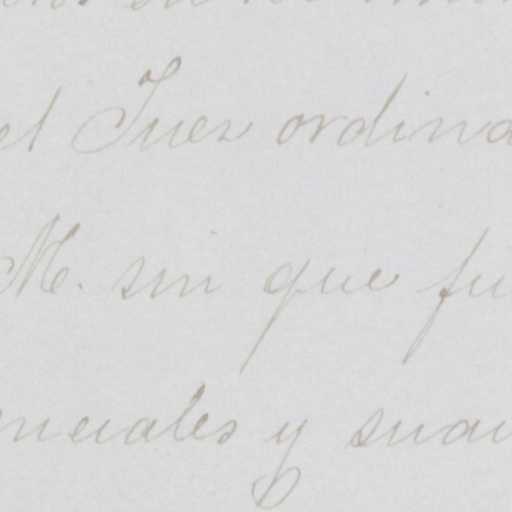 el Juez ordina
M. sin que fu
enciales y suav